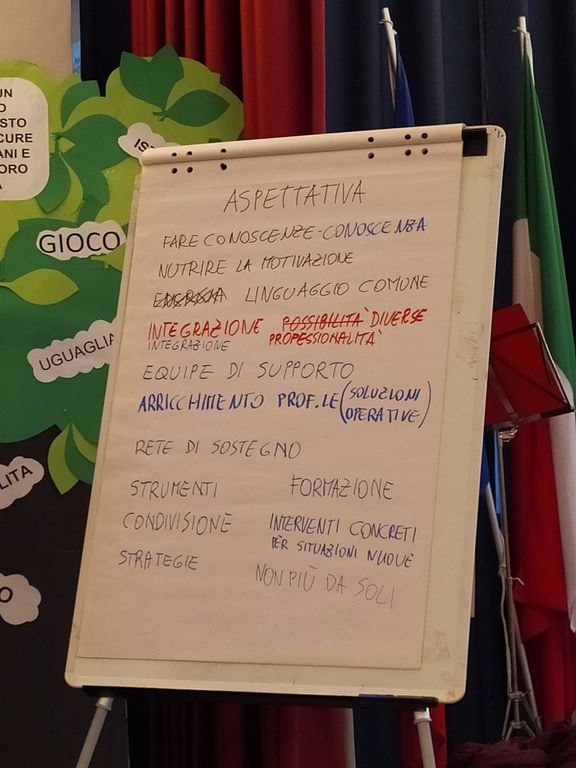 UN
O
STO
CURE
ANI E
ORO
A
IS
GIOCO
UGUAGLIA
LITA
O
ASPETTATIVA
FARE CONOSCENZE-CONOSCENZA
NUTRIRE LA MOTIVAZIONE
ENERGIA LINGUAGGIO COMUNE
INTEGRAZIONE POSSIBILITÀ DIVERSE
INTEGRAZIONE PROFESSIONALITÀ
EQUIPE DI SUPPORTO
ARRICCHIMENTO PROF.LE (SOLUZIONI
OPERATIVE)
RETE DI SOSTEGNO
STRUMENTI FORMAZIONE
CONDIVISIONE INTERVENTI CONCRETI
PER SITUAZIONI NUOVE
STRATEGIE NON PIÙ DA SOLI